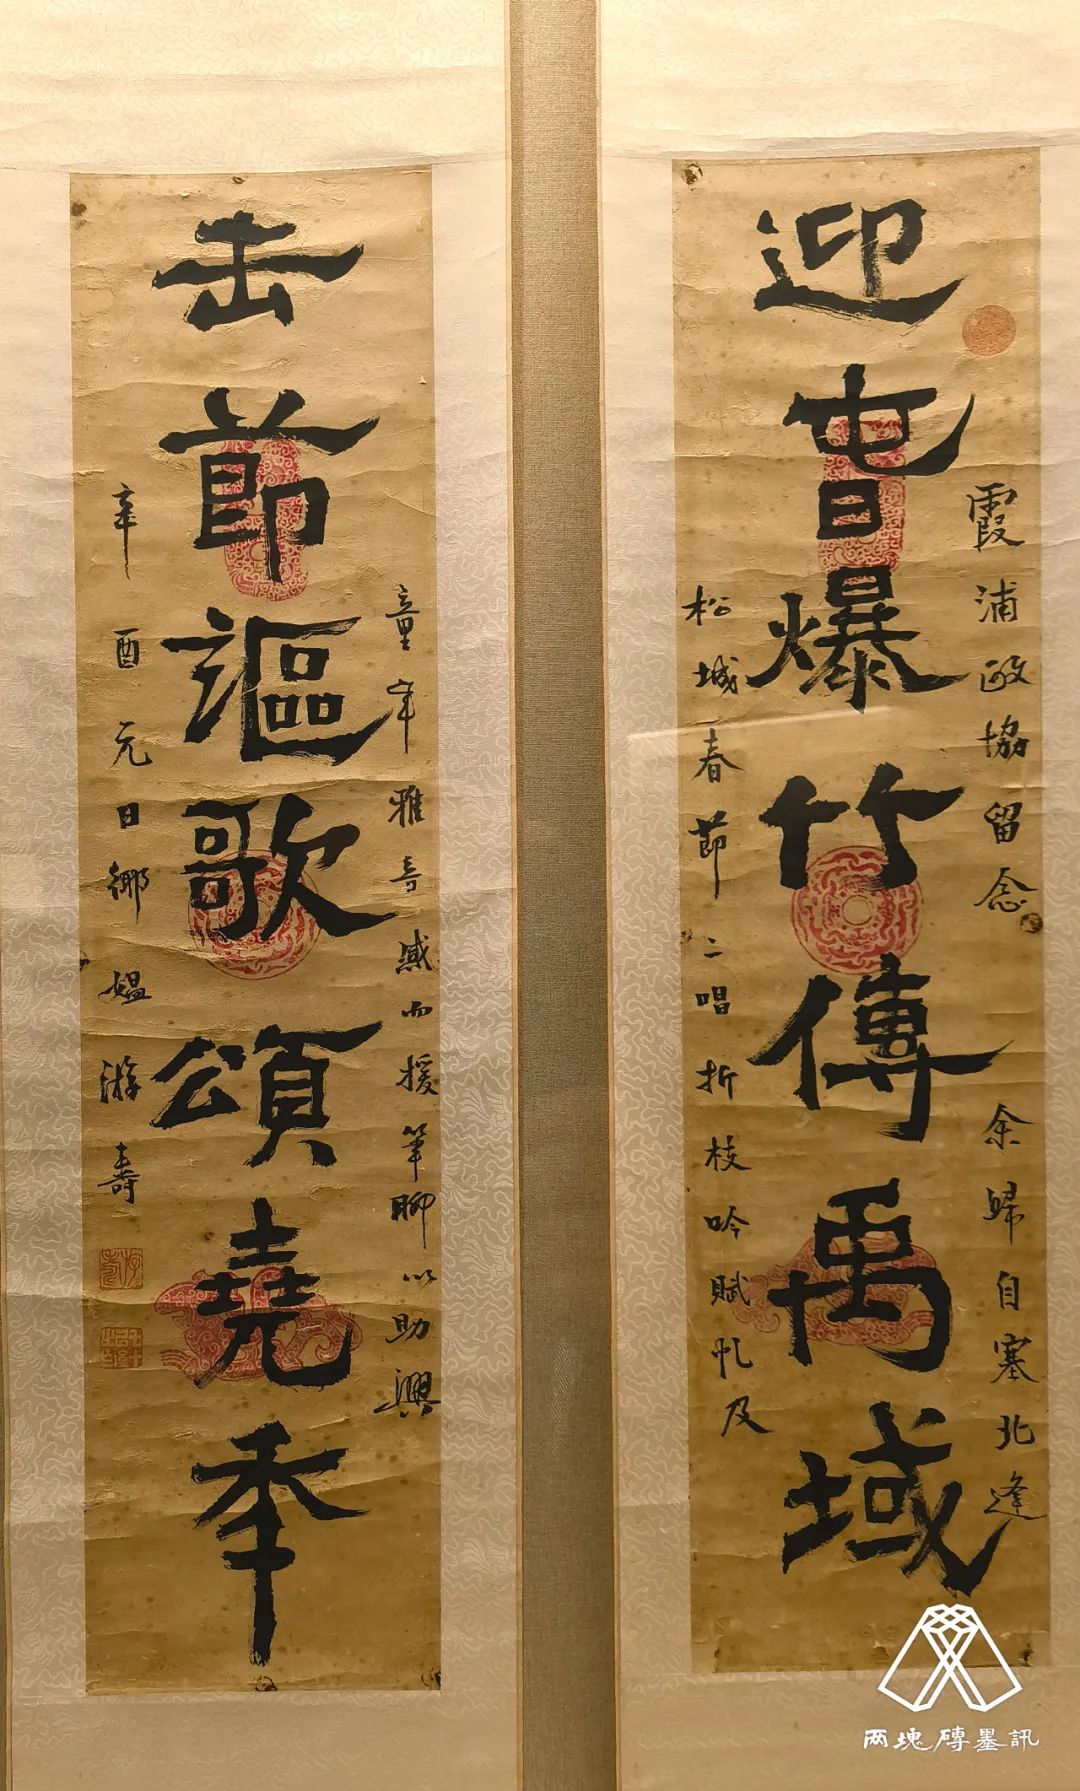 霞浦政協留念 余歸自塞北逢
迎旾爆竹傳禹域
松城春節二唱折枝吟賦及
童年雅音感而援筆聊以助興
击節謳歌頌堯秊
辛酉元日鄉媼游壽
两塊磚墨訊